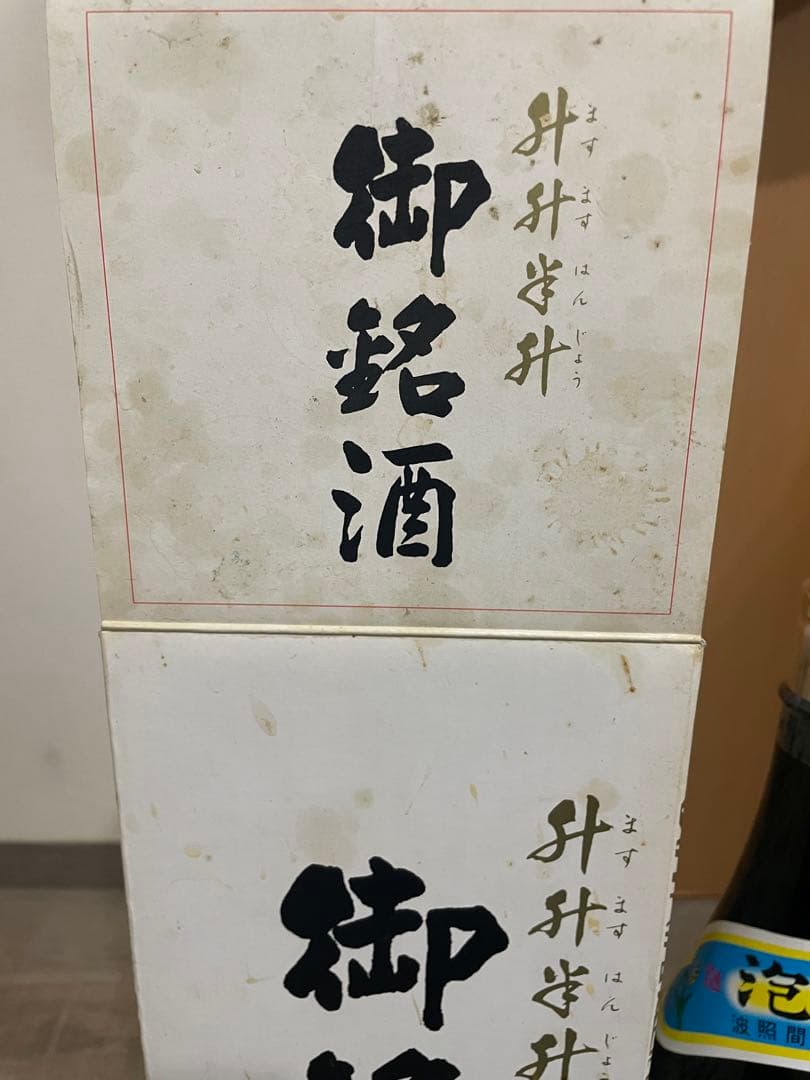 升升半升
ます ます はん じょう
御銘酒
升升半升
ます ます はん じょ
御銘
泡
波照間